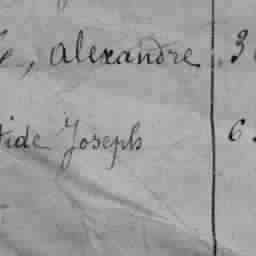 , Alexandre 3
ide Joseph 6